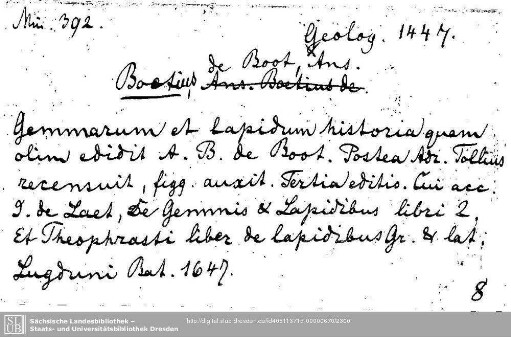 Min. 392.
Geolog. 1447.
de Boot, Ans.
Boetius, Ans. Boetius de
Gemmarum et lapidum historia quam
olim edidit A. B. de Boot. Postea Adr. Tollius
recensuit, figg. auxit. Tertia editio. Cui acc.
I. de Laet, De Gemmis & Lapidibus libri 2,
Et Theophrasti liber de lapidibus Gr. & lat;
Lugduni Bat. 1647.
8
SLUB
Sächsische Landesbibliothek –
Staats- und Universitätsbibliothek Dresden